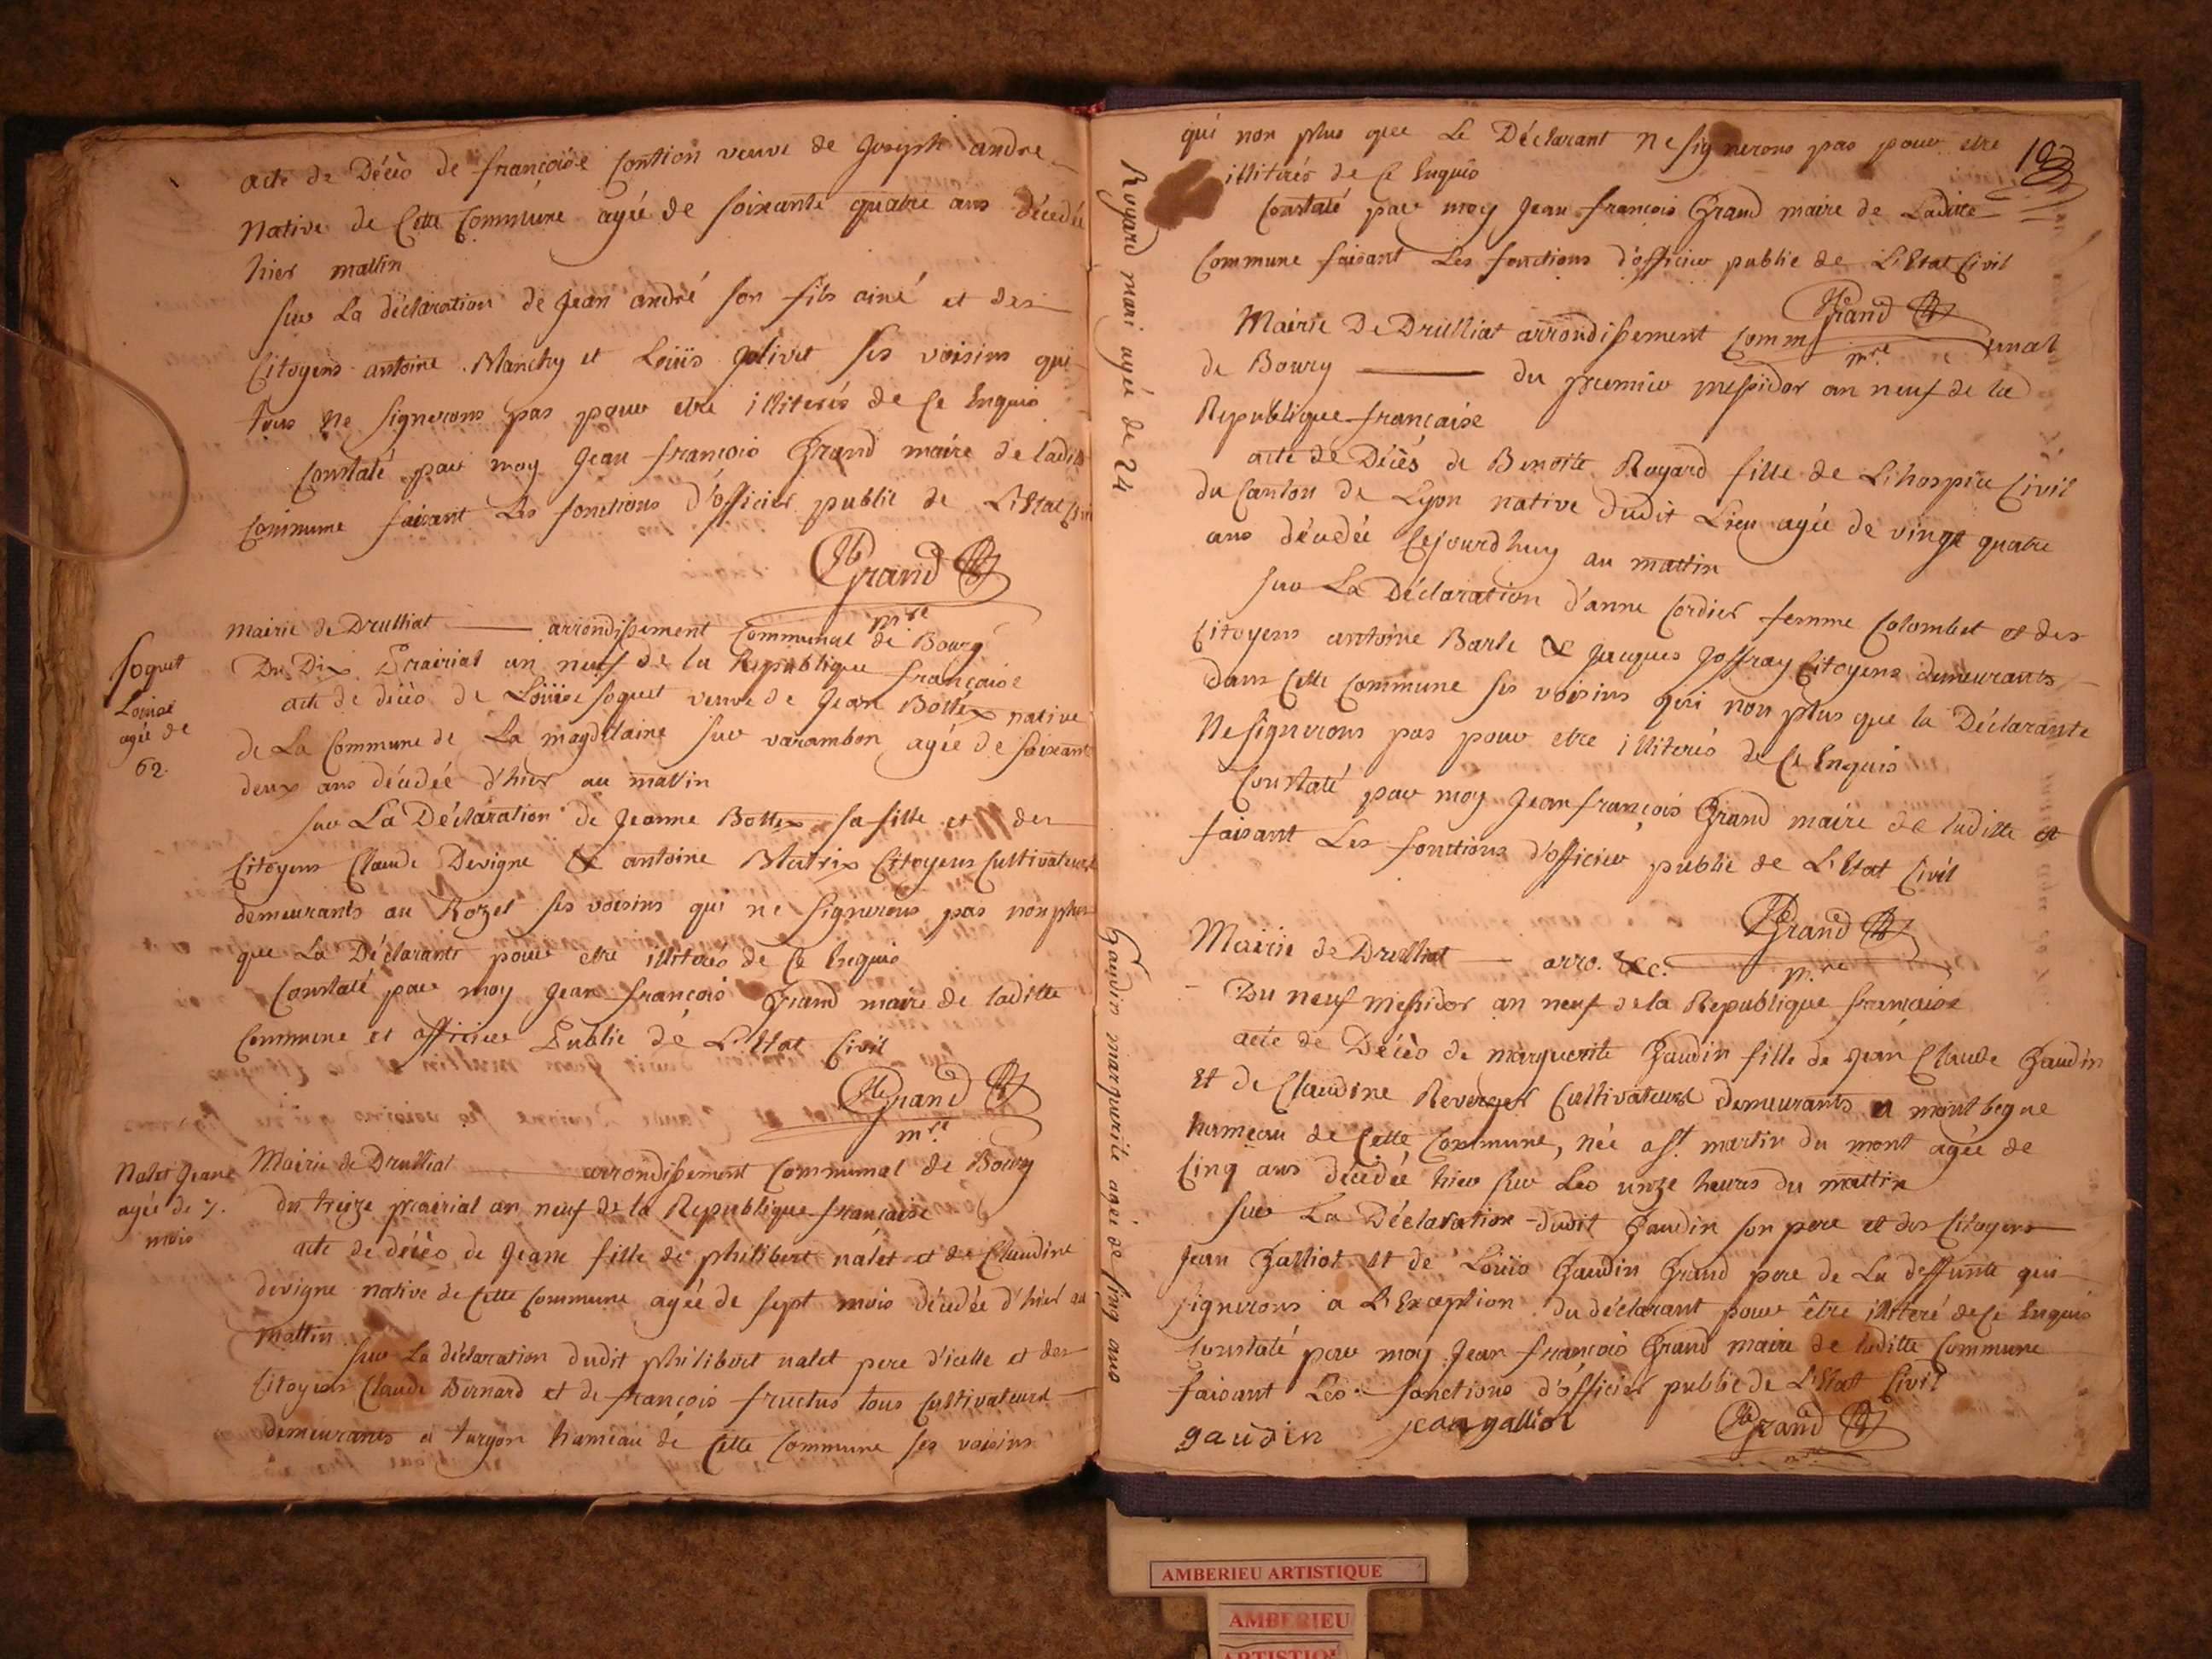 acte de Décès de françoise Contion veuve de Joseph andre
Native de Cette Commune agée de soixante quatre ans décedée
hier mattin
sur La déclaration de Jean andré son fils ainé et des
Citoyens antoine Blanchy et Loüis Jolivet ses voisins qui
tous ne signerons pas pour etre illiterés de Ce Enquis
Constaté par moy Jean françois Grand maire de ladite
Commune faisant Les fonctions d'officier public de L'Etat Civil
Grand
mre
Soquet
Loüise
agée de
62.
Mairie de Drulliat arrondissement Communal de Bourg
Du Dix Prairial an neuf de la Republique française
acte de décès de Loüise soquet veuve de Jean Bottex native
de La Commune de La magdelaine sur varambon agée de soixante
deux ans décedée d'hier au mattin
sur La Déclaration de Jeanne Bottex sa fille et des
Citoyens Claude Devigne & antoine Blatrix Citoyens Cultivateurs
demeurants au Rozet ses voisins qui ne signerons pas non plus
que La Déclarante pour etre illiterés de Ce Enquis
Constaté par moy Jean françois Grand maire de laditte
Commune et officier Public de L'Etat Civil
Grand
mre
Nalet Jeane
agée de 7.
mois
Mairie de Drulliat arrondissement Communal de Bourg
du treize prairial an neuf de la Republique française
acte de décès de Jeane fille de philibert nalet et de Claudine
devigne native de Cette Commune agée de sept mois décedée d'hier au
mattin
sur La déclaration dudit philibert nalet pere d'icelle et des
Citoyens Claude Bernard et de françois fructus tous Cultivateurs
demeurants a turgon hameau de Cette Commune ses voisins
103
qui non plus que Le Déclarant ne signerons pas pour etre
illiterés de Ce Enquis
Constaté par moy Jean françois Grand maire de Laditte
Commune faisant Les fonctions d'officier public de L'Etat Civil
Grand
mre
Royard mari agée de 24
Mairie De Drulliat arrondissement Communal
de Bourg du premier messidor an neuf de la
Republique française
acte de Décès de Benoite Royard fille de L'hospice Civil
du Canton de Lyon native dudit Lieu agée de vingt quatre
ans décedée Cejourdhuy au mattin
sur La Déclaration d'anne Cordier femme Colombet et des
Citoyens antoine Barle & Jacques Joffray Citoyens demeurants
dans Cette Commune ses voisins qui non plus que la Déclarante
Ne signerons pas pour etre illiterés de Ce Enquis
Constaté par moy Jean françois Grand maire de laditte et
faisant Les fonctions d'officier public de L'Etat Civil
Grand
mre
Gaudin marguerite agée de cinq ans
Mairie de Drulliat arro. &c.
Du neuf Messidor an neuf de la Republique française
acte de Décès de marguerite Gaudin fille de Jean Claude Gaudin
Et de Claudine Revergel Cultivateurs Demeurants a mont begue
hameau de Cette Commune, née a st martin du mont agée de
Cinq ans décedée hier sur Les unze heures du mattin
sur La Déclaration dudit Gaudin son pere et des Citoyens
Jean Galliot et de Loüis Gaudin Grand pere de La deffunte qui
signerons a L'Exception du déclarant pour être illiteré de Ce Enquis
Constaté par moy Jean françois Grand maire de laditte Commune
faisant Les fonctions d'officier public de L'Etat Civil
gaudin jean galliot Grand
mre
AMBERIEU ARTISTIQUE
AMBERIEU
ARTISTIQUE